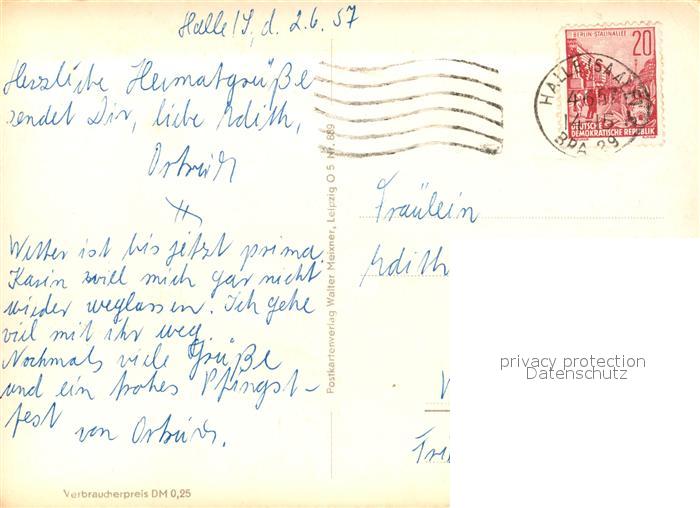 Halle/S, d. 2.6.57
Herzliche Heimatgrüße
sendet Dir, liebe Edith,
Ortrud
Wetter ist bis jetzt prima.
Karin will mich gar nicht
wieder weglassen. Ich gehe
viel mit ihr weg.
Nochmals viele Grüße
und ein frohes Pfingst-
fest
von Ortrud.
Verbraucherpreis DM 0,25
Postkartenverlag Walter Meixner, Leipzig O 5 Nr. 889
BERLIN-STALINALLEE
20
DEUTSCHE
DEMOKRATISCHE REPUBLIK
HALLE (SAALE)
BPA 29
Fräulein
Edith
privacy protection
Datenschutz